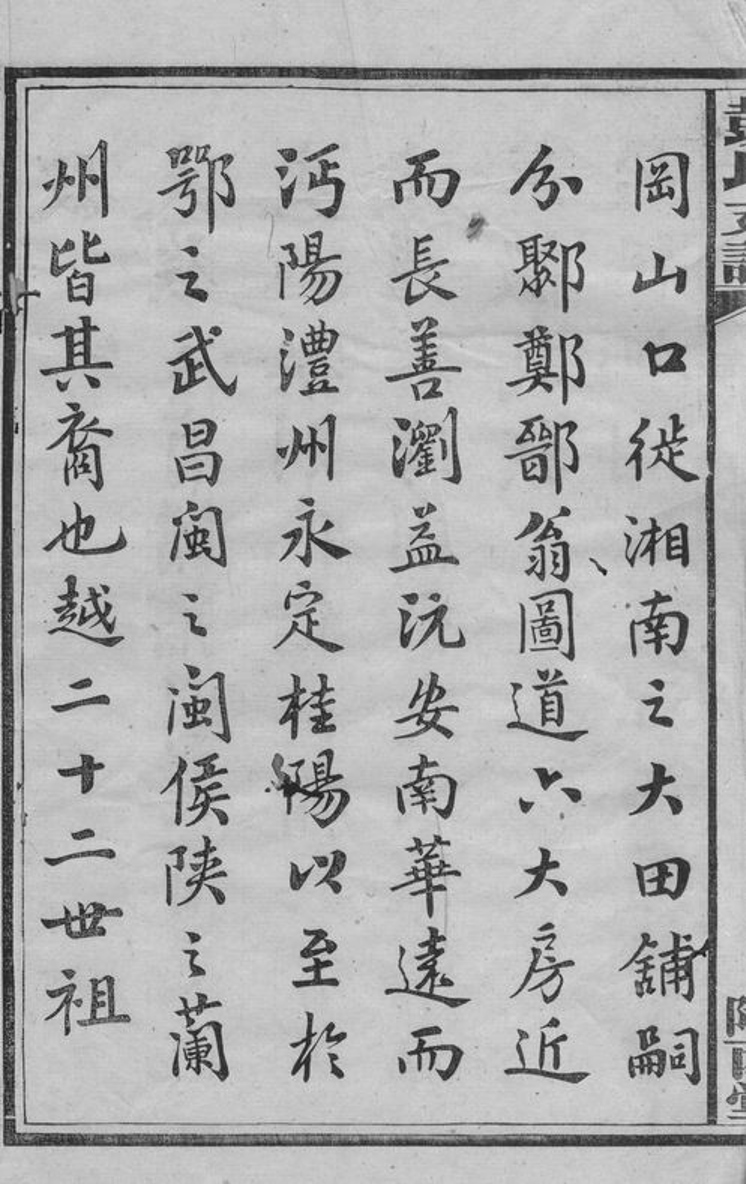 岡山口徙湘南之大田舖嗣
分鄹鄭鄑翁圖道六大房近
而長善瀏益沅安南華遠而
沔陽澧州永定桂陽以至於
鄂之武昌閩之閩侯陝之蘭
州皆其裔也越二十二世祖